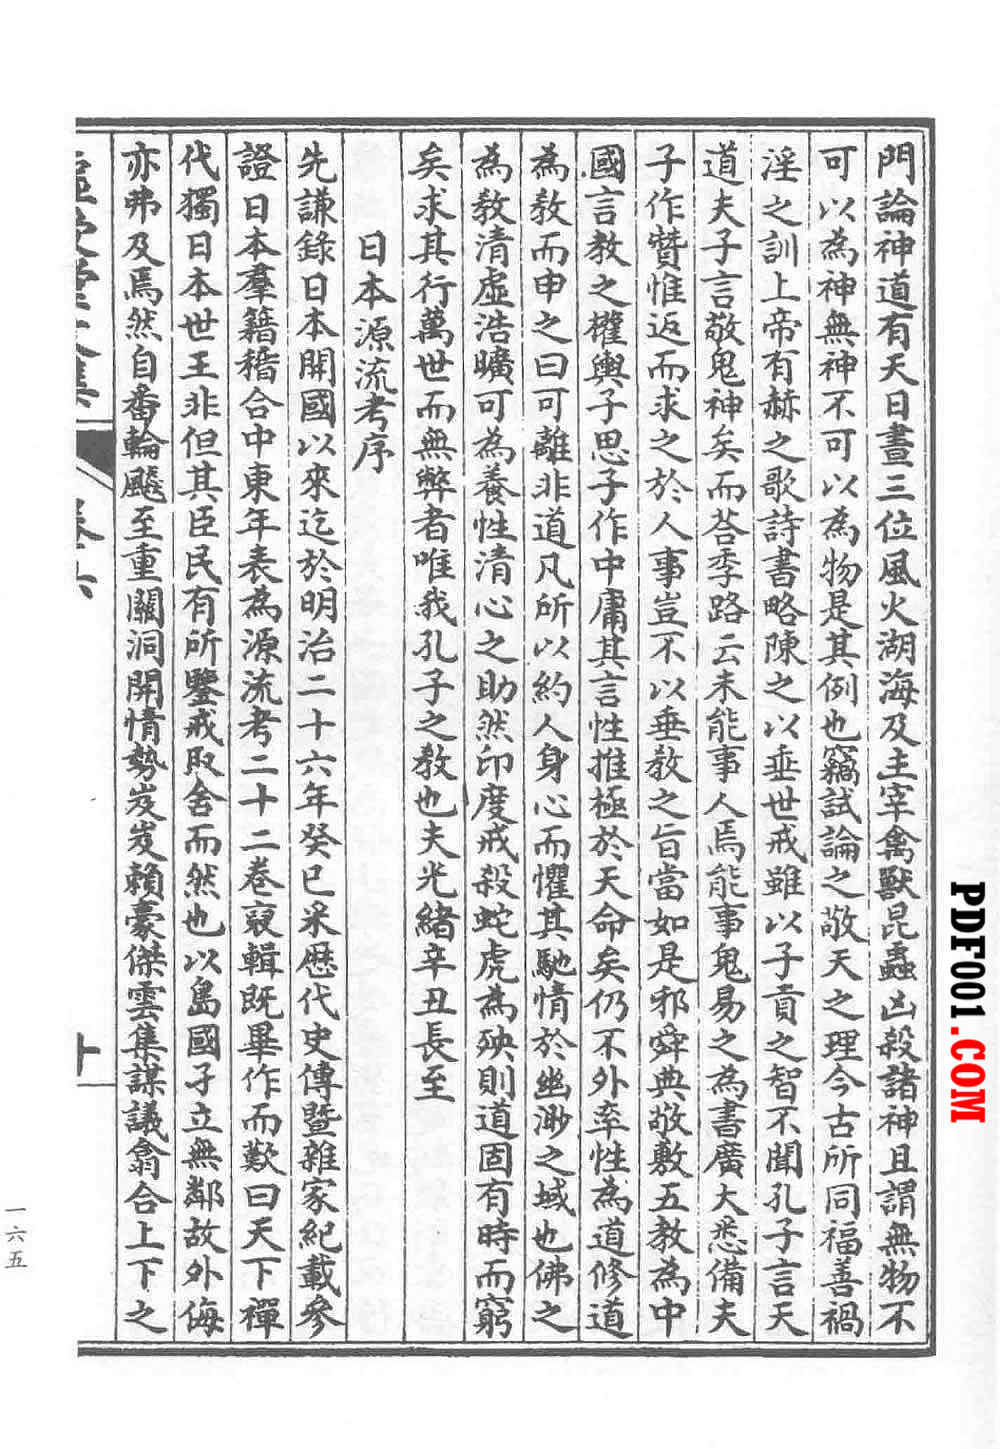 門論神道有天日晝三位風火湖海及主宰禽獸昆蟲凶殺諸神且謂無物不
可以為神無神不可以為物是其例也竊試論之敬天之理今古所同福善禍
淫之訓上帝有赫之歌詩書略陳之以垂世戒雖以子貢之智不聞孔子言天
道夫子言敬鬼神矣而荅季路云未能事人焉能事鬼易之為書廣大悉備夫
子作贊惟返而求之於人事豈不以垂教之旨當如是邪舜典敬敷五教為中
國言教之權輿子思子作中庸其言性推極於天命矣仍不外率性為道修道
為教而申之曰可離非道凡所以約人身心而懼其馳情於幽渺之域也佛之
為教清虛浩曠可為養性清心之助然印度戒殺蛇虎為殃則道固有時而窮
矣求其行萬世而無弊者唯我孔子之教也夫光緒辛丑長至
日本源流考序
先謙錄日本開國以來迄於明治二十六年癸巳采歷代史傳暨雜家紀載參
證日本羣籍稽合中東年表為源流考二十二卷裒輯既畢作而歎曰天下禪
代獨日本世王非但其臣民有所鑒戒取舍而然也以島國孑立無鄰故外侮
亦弗及焉然自番輪颷至重關洞開情勢岌岌賴豪傑雲集謀議翕合上下之
一六五
PDF001.COM